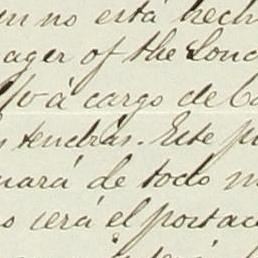 no está hech
ager of the Lond
á cargo de
tendrás. Este p
mará de todo m
o será el portad